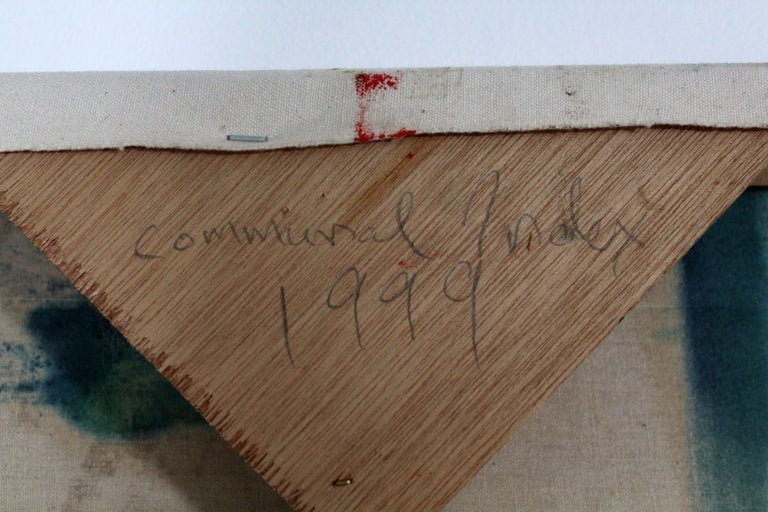 communal Index
1999